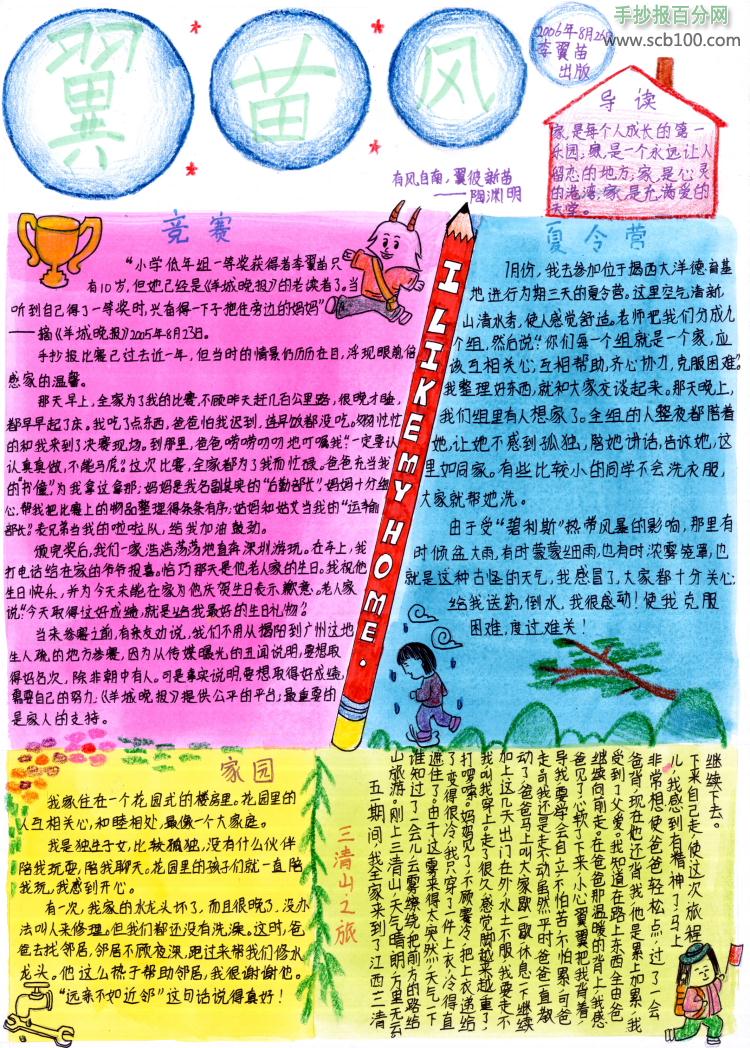 手抄报百分网
www.scb100.com
翼苗风
2006年8月25日
李翼苗
出版
导读
家,是每个人成长的第一
乐园;家,是一个永远让人
留恋的地方;家,是心灵
的港湾;家,是充满爱的
天空。
有风自南,翼彼新苗
——陶渊明
竞赛
“小学低年组一等奖获得者李翼苗只
有10岁,但她已经是《羊城晚报》的老读者了。当
听到自己得了一等奖时,兴奋得一下子把住旁边的妈妈”
——摘《羊城晚报》2005年8月23日。
手抄报比赛已过去近一年,但当时的情景仍历历在目,浮现眼前,倍
感家的温馨。
那天早上,全家为了我的比赛,不顾昨天赶几百公里路,很晚才睡,
都早早起了床。我吃了点东西,爸爸怕我迟到,连早饭都没吃。匆匆忙忙
的和我来到了决赛现场。到那里,爸爸唠唠叨叨地叮嘱我:“一定要认
认真真做,不能马虎。”这次比赛,全家都为了我而忙碌。爸爸充当我
的“书僮”,为我拿这拿那;妈妈是我名副其实的“后勤部长”。妈妈十分细
心,帮我把比赛上的物品整理得条条有序;姑妈和姑丈当我的“运输
部长”。表兄弟当我的啦啦队,给我加油鼓劲。
领完奖后,我们一家浩浩荡荡地直奔深圳游玩。在车上,我
打电话给在家的爷爷报喜。恰巧那天是他老人家的生日。我祝他
生日快乐,并为今天未能在家为他庆贺生日表示歉意。老人家
说:“今天取得这好成绩,就是给我最好的生日礼物。”
当来参赛之前,有亲友劝说,我们不用从揭阳到广州这地
生人疏的地方参赛,因为从传媒曝光的丑闻说明,要想取
得好名次,除非朝中有人。可是事实说明,要想取得好成绩,
需要自己的努力;《羊城晚报》提供公平的平台;最重要的
是家人的支持。
I LIKE MY HOME.
夏令营
7月份,我去参加位于揭西大洋德育基
地进行为期三天的夏令营。这里空气清新,
山清水秀,使人感觉舒适。老师把我们分成九
个组,然后说:“你们每一个组就是一个家,应
该互相关心,互相帮助,齐心协力,克服困难。”
我整理好东西,就和大家交谈起来。那天晚上,
我们组里有人想家了。全组的人整夜都陪着
她,让她不感到孤独,陪她讲话,告诉她,这
里如同家。有些比较小的同学不会洗衣服,
大家就帮她洗。
由于受“碧利斯”热带风暴的影响,那里有
时倾盆大雨,有时蒙蒙细雨,也有时浓雾笼罩,也
就是这种古怪的天气,我感冒了,大家都十分关心:
给我送药,倒水,我很感动!使我克服
困难,度过难关!
家园
我家住在一个花园式的楼房里。花园里的
人互相关心,和睦相处,最像一个大家庭。
我是独生子女,比较孤独,没有什么伙伴
陪我玩耍,陪我聊天。花园里的孩子们就一直陪
我玩,我感到开心。
有一次,我家的水龙头坏了,而且很晚了,没办
法叫人来修理。但我们都还没有洗澡。这时,爸
爸去找邻居,邻居不顾夜深,跑过来帮我们修水
龙头。他这么热于帮助邻居,我很谢谢他。
“远亲不如近邻”这句话说得真好!
三清山之旅
五一期间,我全家来到了江西三清
山旅游。刚上三清山,天气晴朗,万里无云
谁知过了一会儿,云雾缭绕,把前方的路给
遮住了。由于这雾来得太突然,天气一下
了变得很冷,我只穿了一件上衣,冷得直
打啰嗦。妈妈见了,不顾寒冷,把上衣递给
我叫我穿上。走了很久,感觉脚越来越重了
加上这几天出门在外,水土不服,我要走不
动了。爸爸马上叫大家歇一歇,休息一下,继续
走,可我还是走不动。虽然平时,爸爸一直教
导我要学会自立,不怕苦,不怕累,可爸
爸见了,心软了下来,小心翼翼把我背着,
继续向前走。在爸爸那温暖的背上,我感
受到了父爱。我知道在路上东西全由爸
爸背,现在他还背我,他是累上加累,我
非常想使爸爸轻松点,过了一会
儿,我感到有精神了,马上
下来自己走,使这次旅程
继续下去。